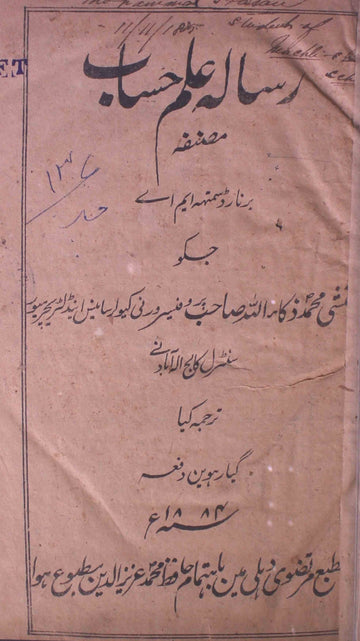 11/11/188
Student of
ET
رسالہ علم حساب
مصنفہ
برنارڈ سمتھ ایم اے
جسکو
منشی محمد ذکاء اللہ صاحب پروفیسر ورنی کیولر سائنس اینڈ لٹریچر میور
سنٹرل کالج الہ آباد نے
ترجمہ کیا
گیارھوین دفعہ
سنہ ۱۸۸۴ ع
مطبع مرتضوی دہلی مین باہتمام حافظ محمد عزیز الدین مطبوع ہوا